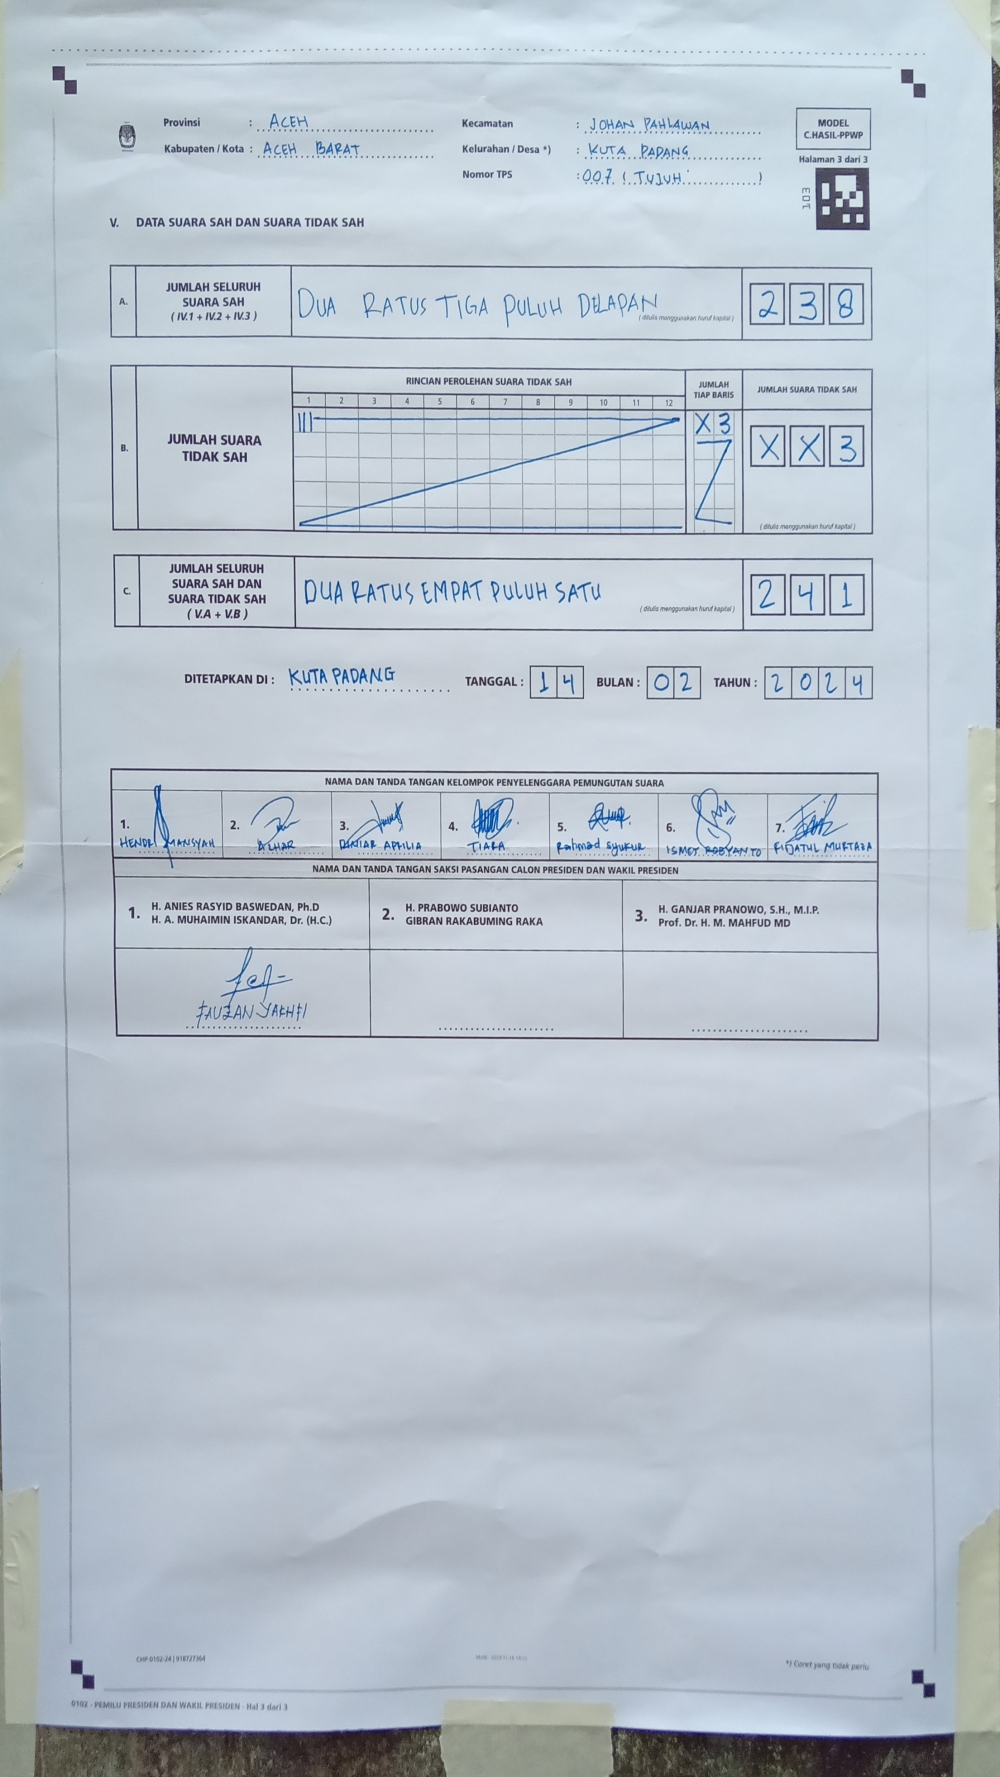 Provinsi : ACEH
Kabupaten / Kota : ACEH BARAT
Kecamatan : JOHAN PAHLAWAN
Kelurahan / Desa *) : KUTA PADANG
Nomor TPS : 007 ( TUJUH )
MODEL
C.HASIL-PPWP
Halaman 3 dari 3
V. DATA SUARA SAH DAN SUARA TIDAK SAH
A. JUMLAH SELURUH SUARA SAH ( IV.1 + IV.2 + IV.3 )
DUA RATUS TIGA PULUH DELAPAN
( ditulis menggunakan huruf kapital )
2 3 8
B. JUMLAH SUARA TIDAK SAH
RINCIAN PEROLEHAN SUARA TIDAK SAH
1 2 3 4 5 6 7 8 9 10 11 12
JUMLAH TIAP BARIS
X 3
JUMLAH SUARA TIDAK SAH
X X 3
( ditulis menggunakan huruf kapital )
C. JUMLAH SELURUH SUARA SAH DAN SUARA TIDAK SAH ( V.A + V.B )
DUA RATUS EMPAT PULUH SATU
( ditulis menggunakan huruf kapital )
2 4 1
DITETAPKAN DI : KUTA PADANG TANGGAL : 14 BULAN : 02 TAHUN : 2024
NAMA DAN TANDA TANGAN KELOMPOK PENYELENGGARA PEMUNGUTAN SUARA
1. 2. 3. 4. 5. 6. 7.
TIARA Rahmad Syukur
NAMA DAN TANDA TANGAN SAKSI PASANGAN CALON PRESIDEN DAN WAKIL PRESIDEN
1. H. ANIES RASYID BASWEDAN, Ph.D
H. A. MUHAIMIN ISKANDAR, Dr. (H.C.)
2. H. PRABOWO SUBIANTO
GIBRAN RAKABUMING RAKA
3. H. GANJAR PRANOWO, S.H., M.I.P.
Prof. Dr. H. M. MAHFUD MD
FAUZAN
CHP-0102-24 | 918727364
*) Coret yang tidak perlu
0102 - PEMILU PRESIDEN DAN WAKIL PRESIDEN - Hal 3 dari 3